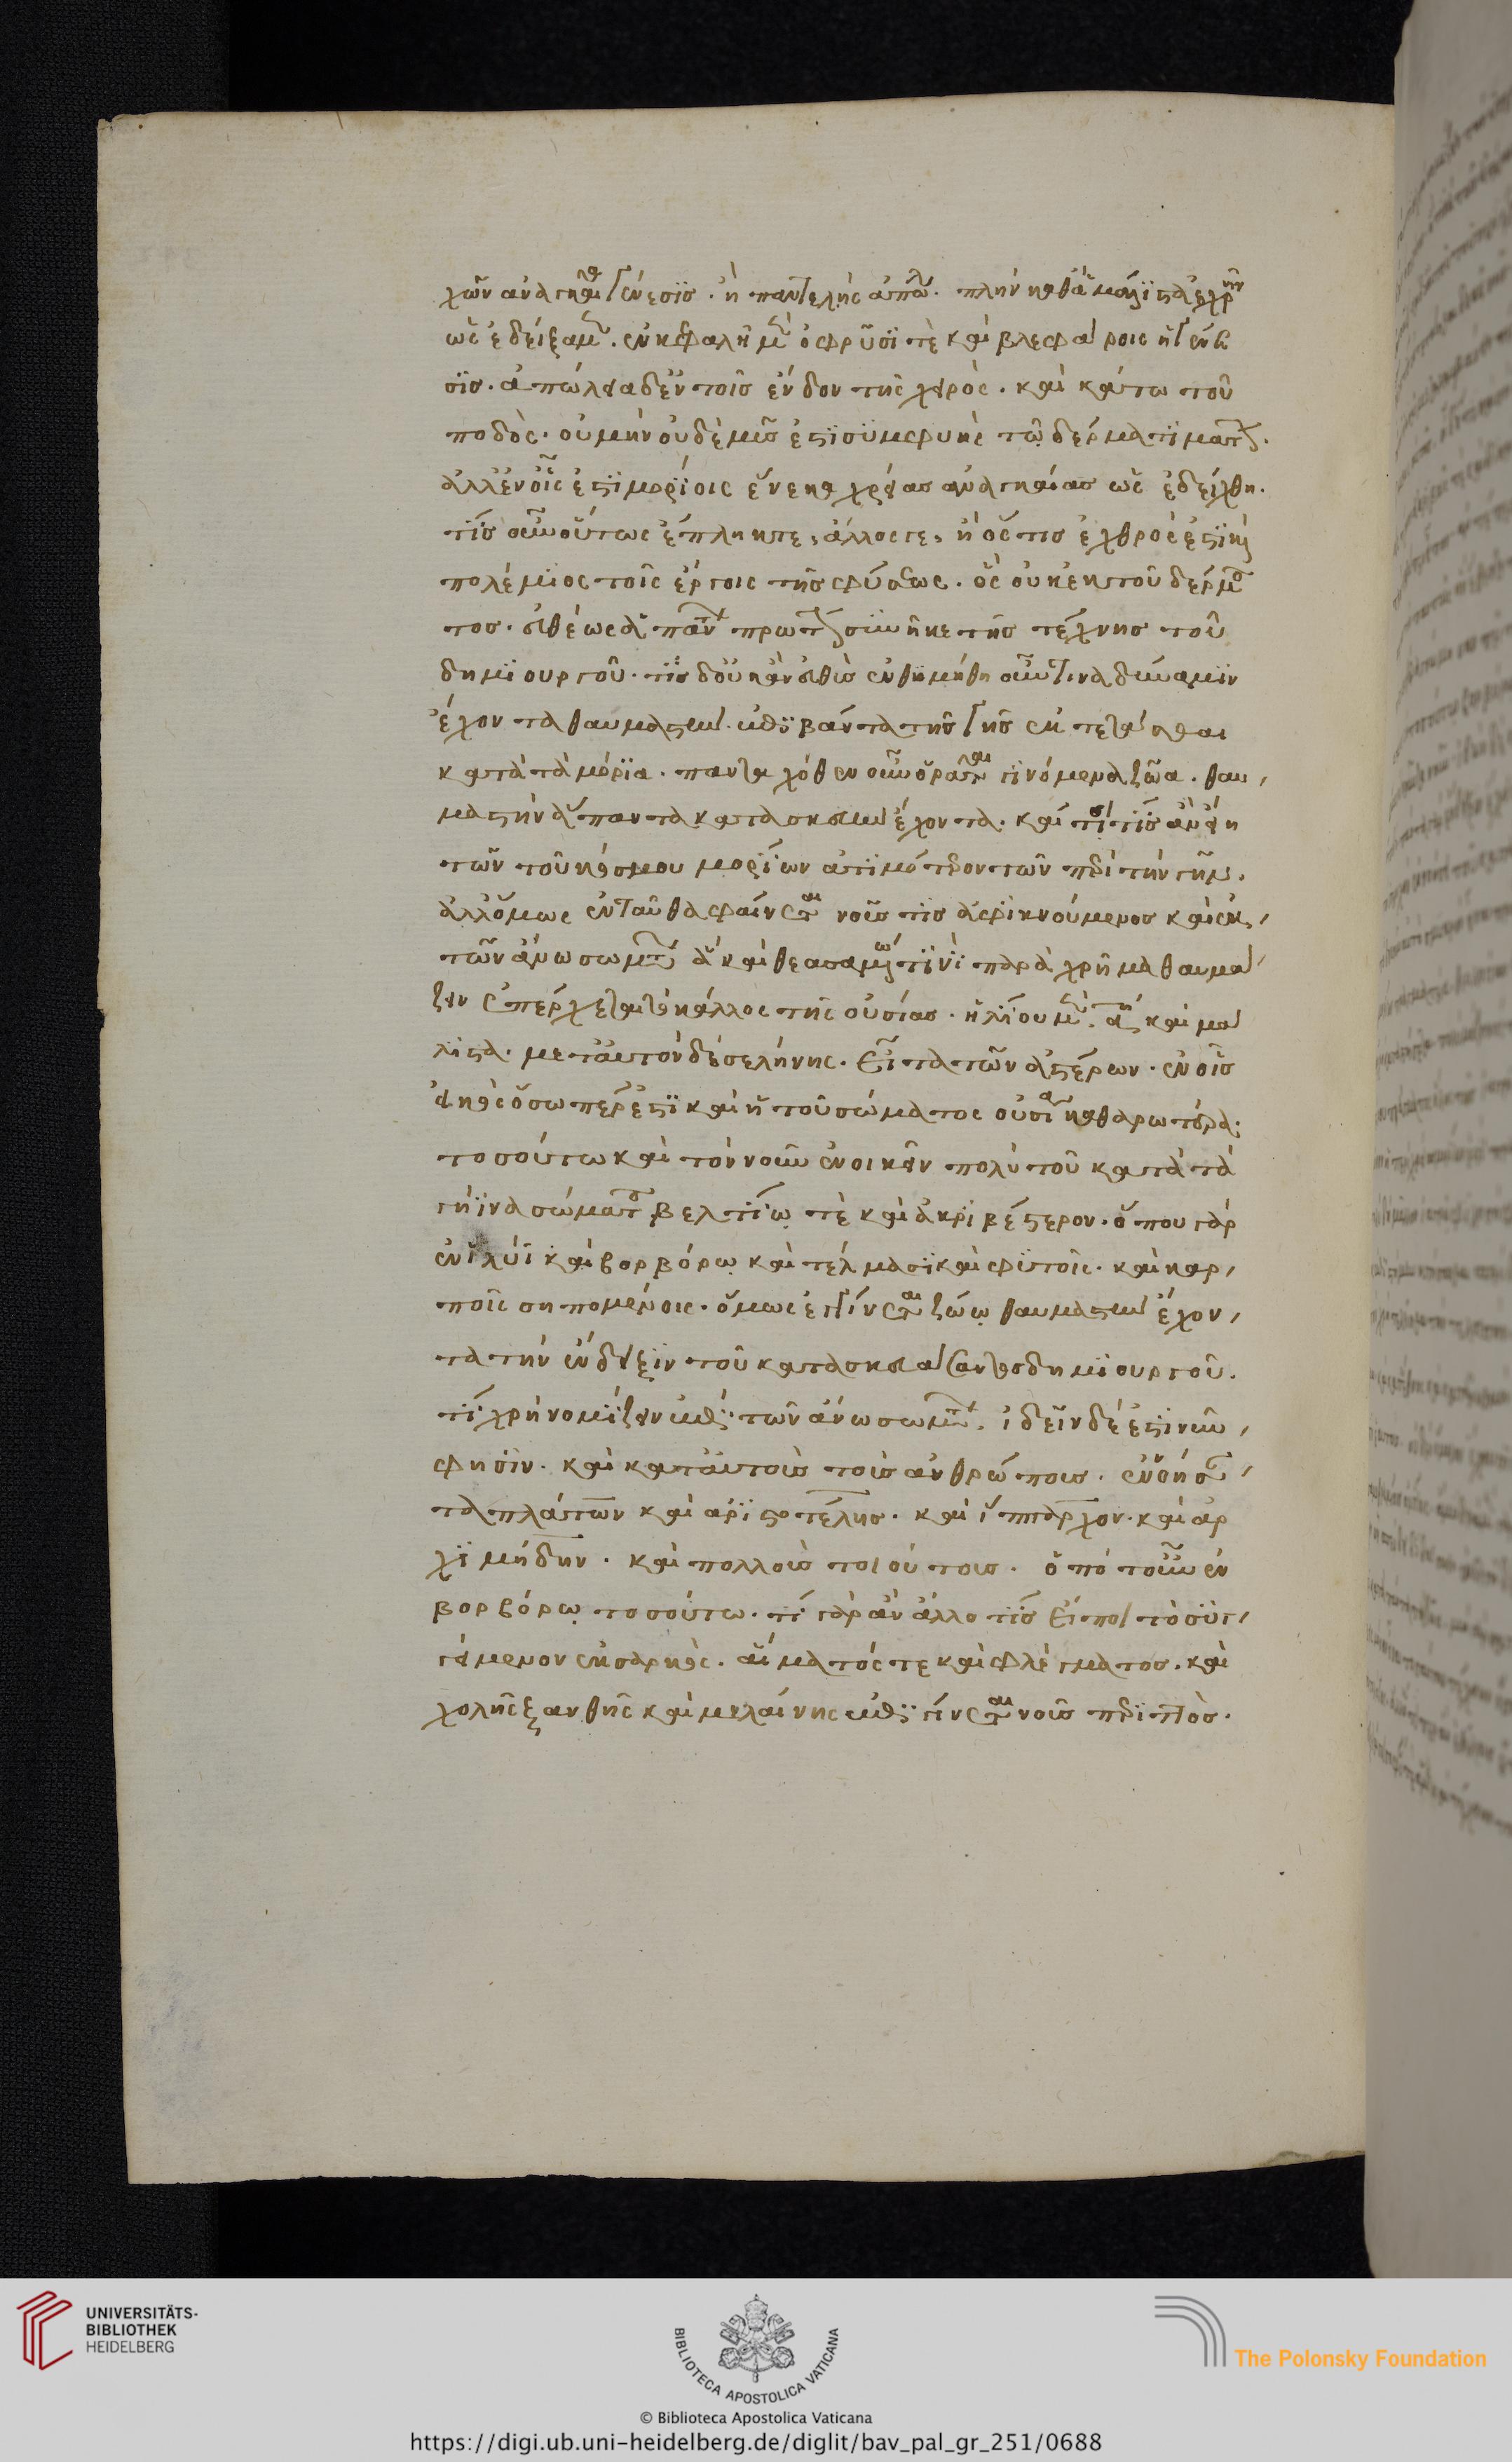 χῶν ἀναγκαῖ γένεσις. ἢ παντελὴς ἀπώλ. πλὴν καθὰ μάλιστα ἐχρῆν
ὡς ἐδείξαμεν. ἐν κεφαλῇ μὲν ὀφρύσί τε καὶ βλεφάροις ἡ γένε
σις. ἀπώλεια δ' ἐν τοῖς ἔνδον τῆς χειρὸς. καὶ κάτω τοῦ
ποδὸς. οὐ μὴν οὐδὲ μῦς ἐστι συμφυὴς τῷ δέρματι μάτην.
ἀλλ' ἐν οἷς ἐστι μορίοις ἕνεκα χρείας ἀναγκαίας ὡς ἐδείχθη.
τίς οὖν οὕτως ἔμπληκτος, ἄλλος γε, ἢ ὅς τις ἐχθρὸς ἐστι καὶ
πολέμιος τοῖς ἔργοις τῆς φύσεως. ὃς οὐκ ἐκ τοῦ δέρμα
τος. εὐθέως ἁπάντων πρῶτον συνῆκε τῆς τέχνης τοῦ
δημιουργοῦ. τίς δ' οὐκ ἂν εὐθὺς ἐνθυμηθῇ νοῦν τινα δύναμιν
ἔχοντα θαυμαστὴν ἐπιβάντα τῆς γῆς ἐκτετάσθαι
κατὰ τὰ μόρια. πανταχόθεν οὖν ὁρᾶται γινόμενα ζῶα. θαυ
μαστὴν ἅπαντα κατασκευὴν ἔχοντα. καί τοι τίς ἂν εἴη
τῶν τοῦ κόσμου μορίων ἀτιμότερον τῶν περὶ τὴν γῆν.
ἀλλ' ὅμως ἐνταῦθα φαίνεται νοῦς τις ἀφικνούμενος καὶ ἐκ
τῶν ἄνω σωμάτων ἃ καὶ θεασαμένῳ τινὶ παραχρῆμα θαυμά
ζειν ἐπέρχεται τὸ κάλλος τῆς οὐσίας. ἡλίου μὲν πρῶτον καὶ μά
λιστα. μετ' αὐτὸν δὲ σελήνης. εἶτα τῶν ἀστέρων. ἐν οἷς
εἰκὸς ὅσῳ πέρ ἐστι καὶ ἡ τοῦ σώματος οὐσία καθαρωτέρα.
τοσούτῳ καὶ τὸν νοῦν ἐνοικεῖν πολὺ τοῦ κατὰ τὰ
γήϊνα σώματα βελτίω τὲ καὶ ἀκριβέστερον. ὅπου γὰρ
ἐν ἰλύϊ καὶ βορβόρῳ καὶ τέλμασι καὶ φυτοῖς. καὶ καρ
ποῖς σηπομένοις. ὅμως ἐγγίνεται ζῶα θαυμαστὴν ἔχον
τα τὴν ἔνδειξιν τοῦ κατασκευάσαντος δημιουργοῦ.
τί χρὴ νομίζειν ἐπὶ τῶν ἄνω σωμάτων. ἰδεῖν δέ ἐστι νοῦ
φησιν. καὶ κατ' αὐτοὺς τοὺς ἀνθρώπους. ἐννοήσαν
τα πλάτων καὶ ἀριστοτέλης. καὶ ἵππαρχον. καὶ ἀρ
χιμήδην. καὶ πολλοὺς τοιούτους. ὁπότ' οὖν ἐν
βορβόρῳ τοσούτῳ. τί γὰρ ἂν ἄλλο τίς εἴποι τὸ συγ
κείμενον ἐκ σαρκὸς. αἵματός τε καὶ φλέγματος. καὶ
χολῆς ξανθῆς καὶ μελαίνης ἐπιγίνεται νοῦς περιττὸς.
UNIVERSITÄTS-
BIBLIOTHEK
HEIDELBERG
BIBLIOTECA APOSTOLICA VATICANA
The Polonsky Foundation
© Biblioteca Apostolica Vaticana
https://digi.ub.uni-heidelberg.de/diglit/bav_pal_gr_251/0688